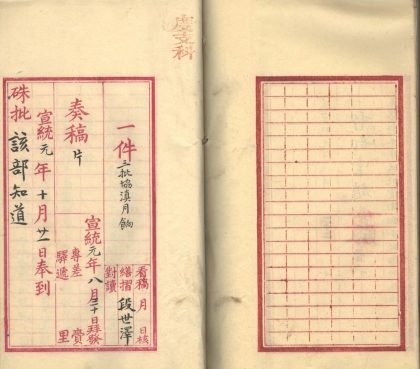 度支科
一件三批協滇月餉
看稿 月 日核
繕摺
對讀
段世澤
宣統元年八月三十日拜發
專差
驛遞
賫
里
奏稿片
宣統元年十月廿一日奉到
硃批 該部知道